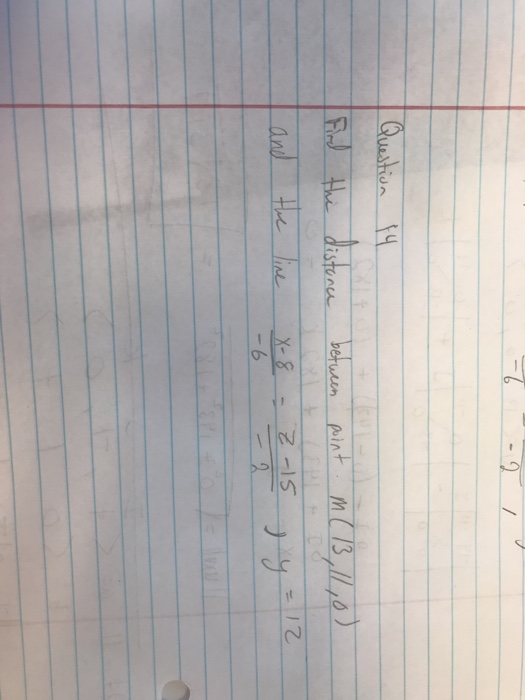 Question 14
Find the distance between point m(13,11,0)
and the line x-8/-6 = z-15/-2, y=12
-6 -2 ,